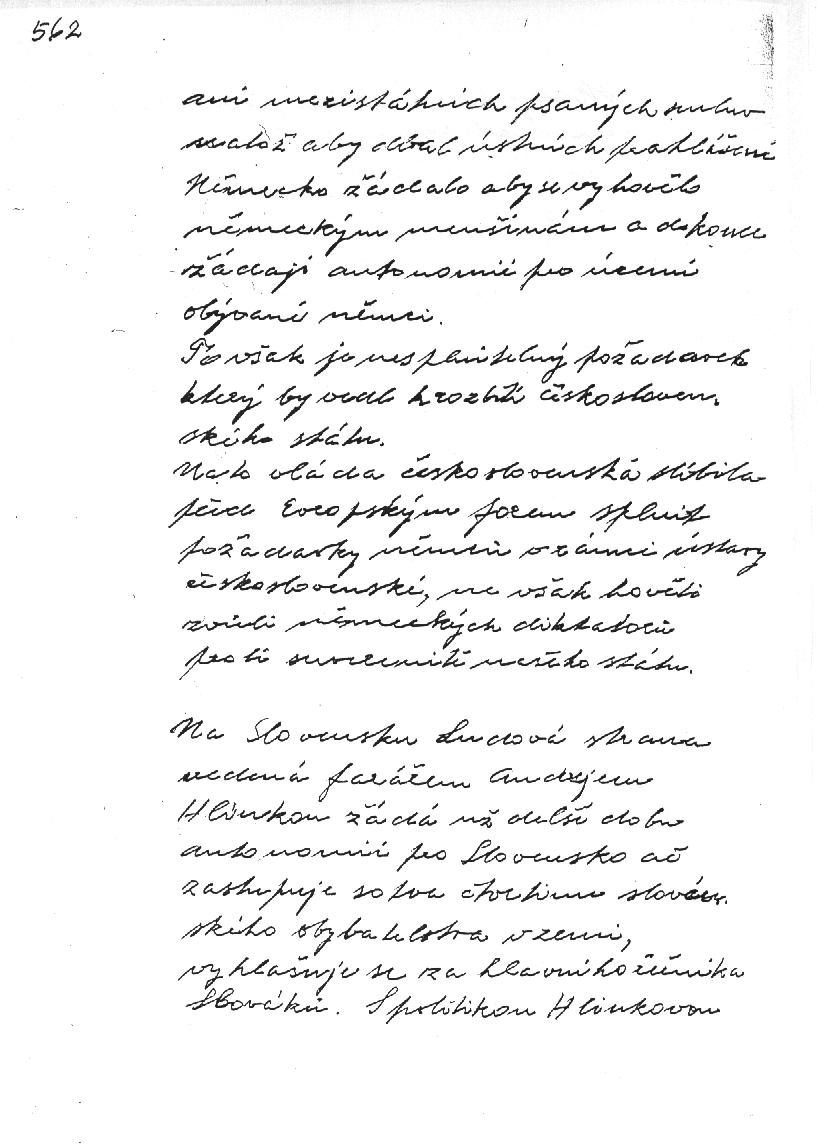 562
ani mezistátních psaných smluv
natož aby dbal ústních prohlášení
Německo žádalo aby se vyhovělo
německým menšinám a dokonce
žádají autonomii pro území
obývané němci.
To však je nesplnitelný požadavek
který by vedl k rozbití českosloven.
ského státu.
Nato vláda československá slíbila
před Evropským forem splnit
požadavky němců v rámci ústavy
československé, ne však hověti
zvůli německých diktátorů
proti suverenitě našeho státu.
Na Slovensku Ludová strana
vedená farářem Andrejem
Hlinkou žádá už delší dobu
autonomii pro Slovensko ač
zastupuje sotva čtvrtinu slovén.
ského obyvatelstva v zemi,
vyhlašuje se za hlavního
Slováků. S politikou Hlinkovou